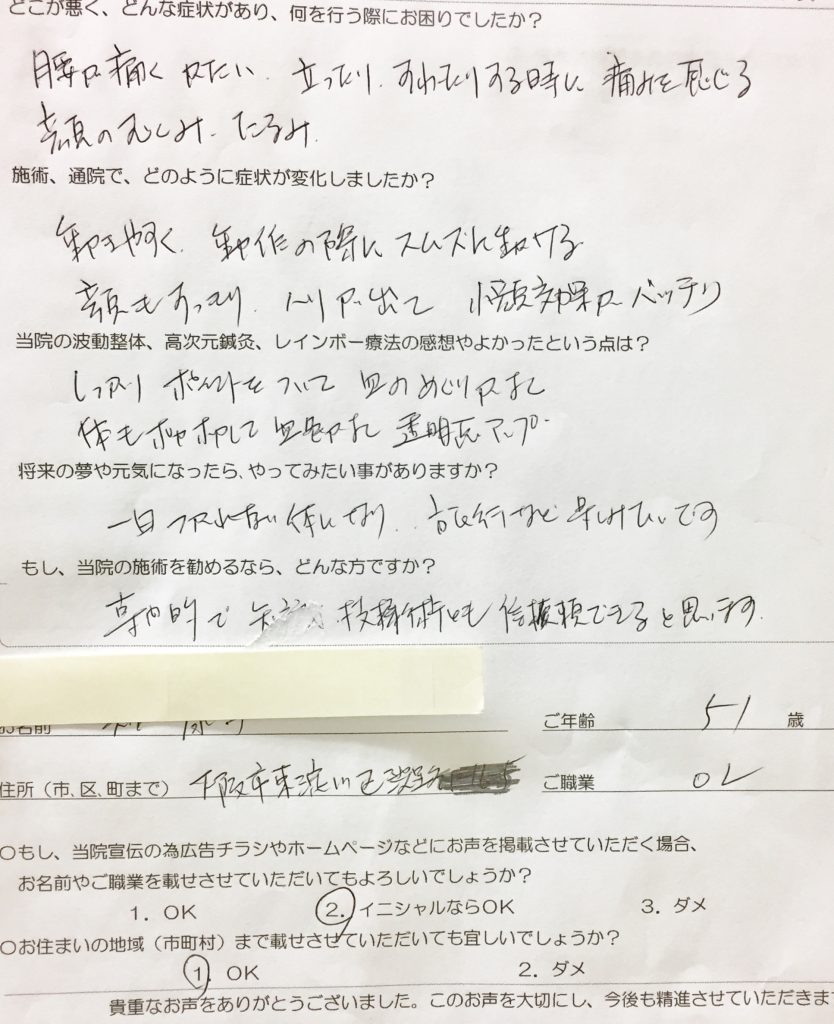 どこが悪く、どんな症状があり、何を行う際にお困りでしたか？
腰が痛く 立ったり、すわたりする時に 痛みを感じる
顔のむくみ、たるみ
施術、通院で、どのように症状が変化しましたか？
動きやすく、動作の際にスムズに動ける
顔もすっきり、ハリが出て 小顔効果がバッチリ
当院の波動整体、高次元鍼灸、レインボー療法の感想やよかったという点は？
しっかり ポイントをついて 血のめぐりが良く
体もポカポカして 透明感アップ
将来の夢や元気になったら、やってみたい事がありますか？
一日つかれない体になり、旅行など楽しみたいです
もし、当院の施術を勧めるなら、どんな方ですか？
専門的で 技術とも 信頼できると思います。
お名前
ご年齢 51 歳
住所（市、区、町まで） 大阪市東淀川区
ご職業 OL
○もし、当院宣伝の為広告チラシやホームページなどにお声を掲載させていただく場合、
お名前やご職業を載せさせていただいてもよろしいでしょうか？
1．OK 2．イニシャルならOK 3．ダメ
○お住まいの地域（市町村）まで載せさせていただいても宜しいでしょうか？
1．OK 2．ダメ
貴重なお声をありがとうございました。このお声を大切にし、今後も精進させていただきま